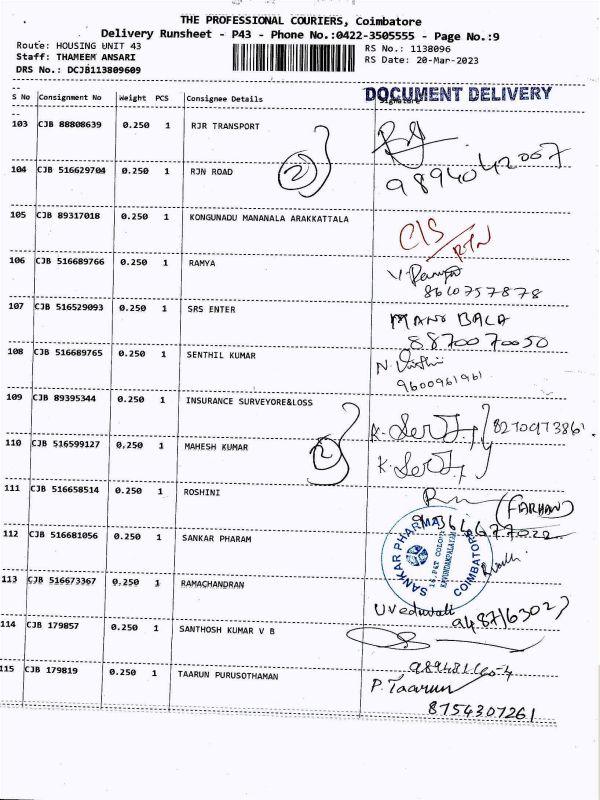 THE PROFESSIONAL COURIERS, Coimbatore
Delivery Runsheet - P43 - Phone No.:0422-3505555 - Page No.:9
Route: HOUSING UNIT 43 RS No.: 1138096
Staff: THAMEEM ANSARI RS Date: 20-Mar-2023
DRS No.: DCJB113809609
DOCUMENT DELIVERY
S No Consignment No Weight PCS Consignee Details Signature
103 CJB 88808639 0.250 1 RJR TRANSPORT
104 CJB 516629704 0.250 1 RJN ROAD 2 9894042007
105 CJB 89317018 0.250 1 KONGUNADU MANANALA ARAKKATTALA C/S RTN
106 CJB 516689766 0.250 1 RAMYA V. Ramya
8610757878
107 CJB 516529093 0.250 1 SRS ENTER MANO BALA
8870070050
108 CJB 516689765 0.250 1 SENTHIL KUMAR N.
9600961961
109 CJB 89395344 0.250 1 INSURANCE SURVEYORE&LOSS K.
110 CJB 516599127 0.250 1 MAHESH KUMAR 2 K.
111 CJB 516658514 0.250 1 ROSHINI (FARHAN)
112 CJB 516681056 0.250 1 SANKAR PHARAM SANKAR PHARMA COIMBATORE
113 CJB 516673367 0.250 1 RAMACHANDRAN
114 CJB 179857 0.250 1 SANTHOSH KUMAR V B
115 CJB 179819 0.250 1 TAARUN PURUSOTHAMAN P. Taarun
8754307261